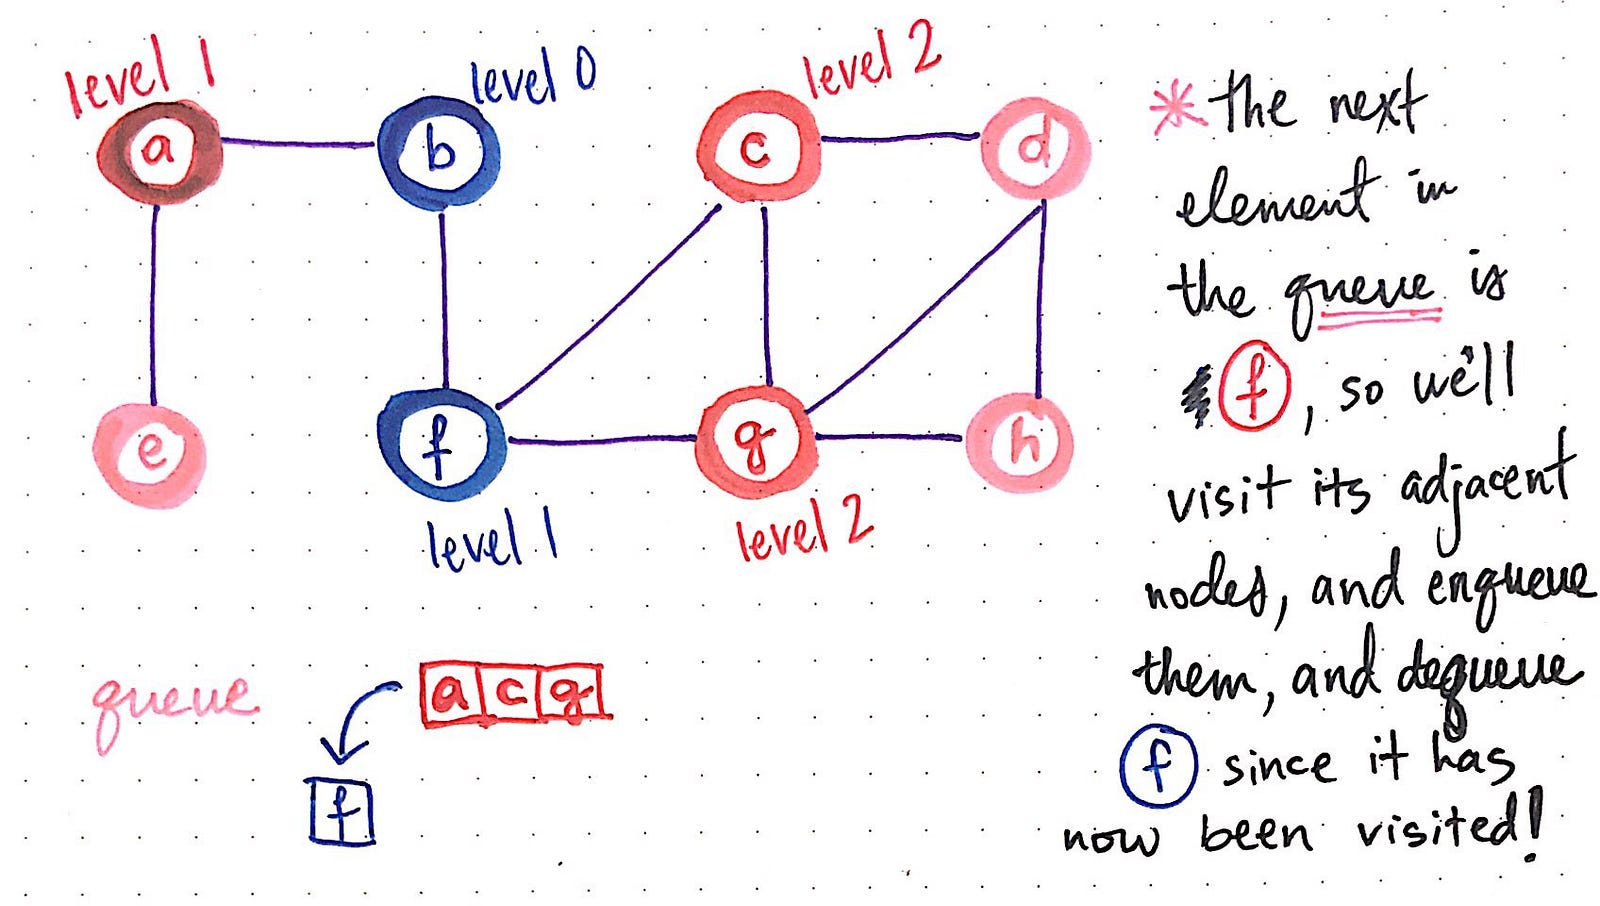 level 1
level 0
level 2
a
b
c
d
e
f
g
h
level 1
level 2
queue
a c g
f
* the next
element in
the queue is
f, so we'll
visit its adjacent
nodes, and enqueue
them, and dequeue
f since it has
now been visited!